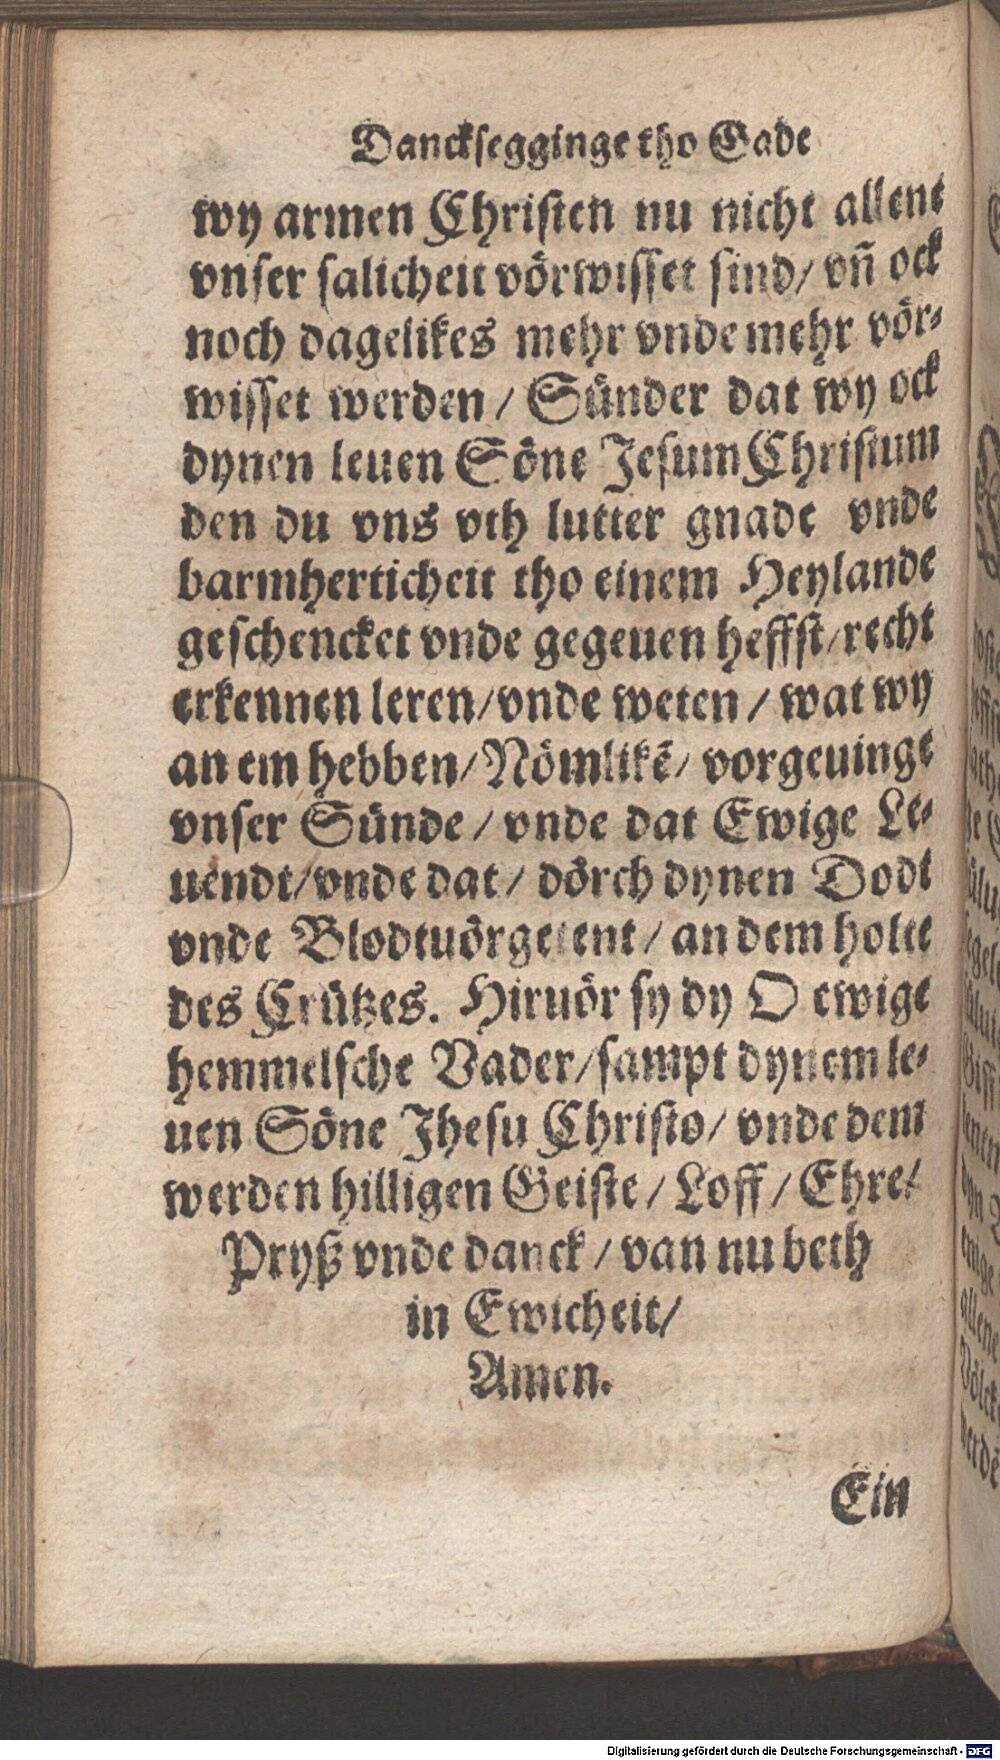 Danckſegginge tho Gade
wy armen Chriſten nu nicht allene
vnſer ſalicheit vörwiſſet ſind/ vñ ock
noch dagelikes mehr vnde mehr vör⸗
wiſſet werden / Sünder dat wy ock
dynen leuen Söne Jeſum Chriſtum
den du vns vth lutter gnade vnde
barmherticheit tho einem Heylande
geſchencket vnde gegeuen heffſt/ recht
erkennen leren/ vnde weten / wat wy
an em hebben/ Nömlikē/ vorgeuinge
vnſer Sünde / vnde dat Ewige Le⸗
uendt/ vnde dat/ dörch dynen Dodt
vnde Blodtuörgetent / an dem holte
des Crützes. Hiruör ſy dy O ewige
hemmelſche Vader/ ſampt dynem le⸗
uen Söne Jheſu Chriſto/ vnde dem
werden hilligen Geiſte / Loff / Ehre/
Pryß vnde danck / van nu beth
in Ewicheit/
Amen.
Ein
Digitalisierung gefördert durch die Deutsche Forschungsgemeinschaft - DFG